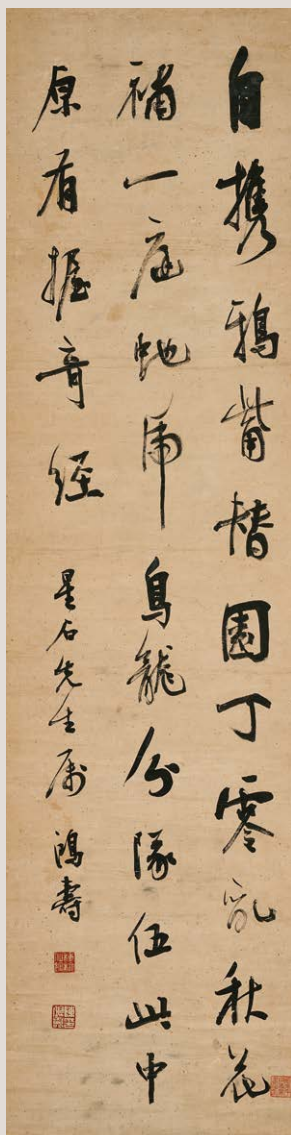 自携鴉觜替園丁零亂秋花
補一庭虵虎鳥龍分隊伍此中
原有握奇經 星石先生属 鴻壽